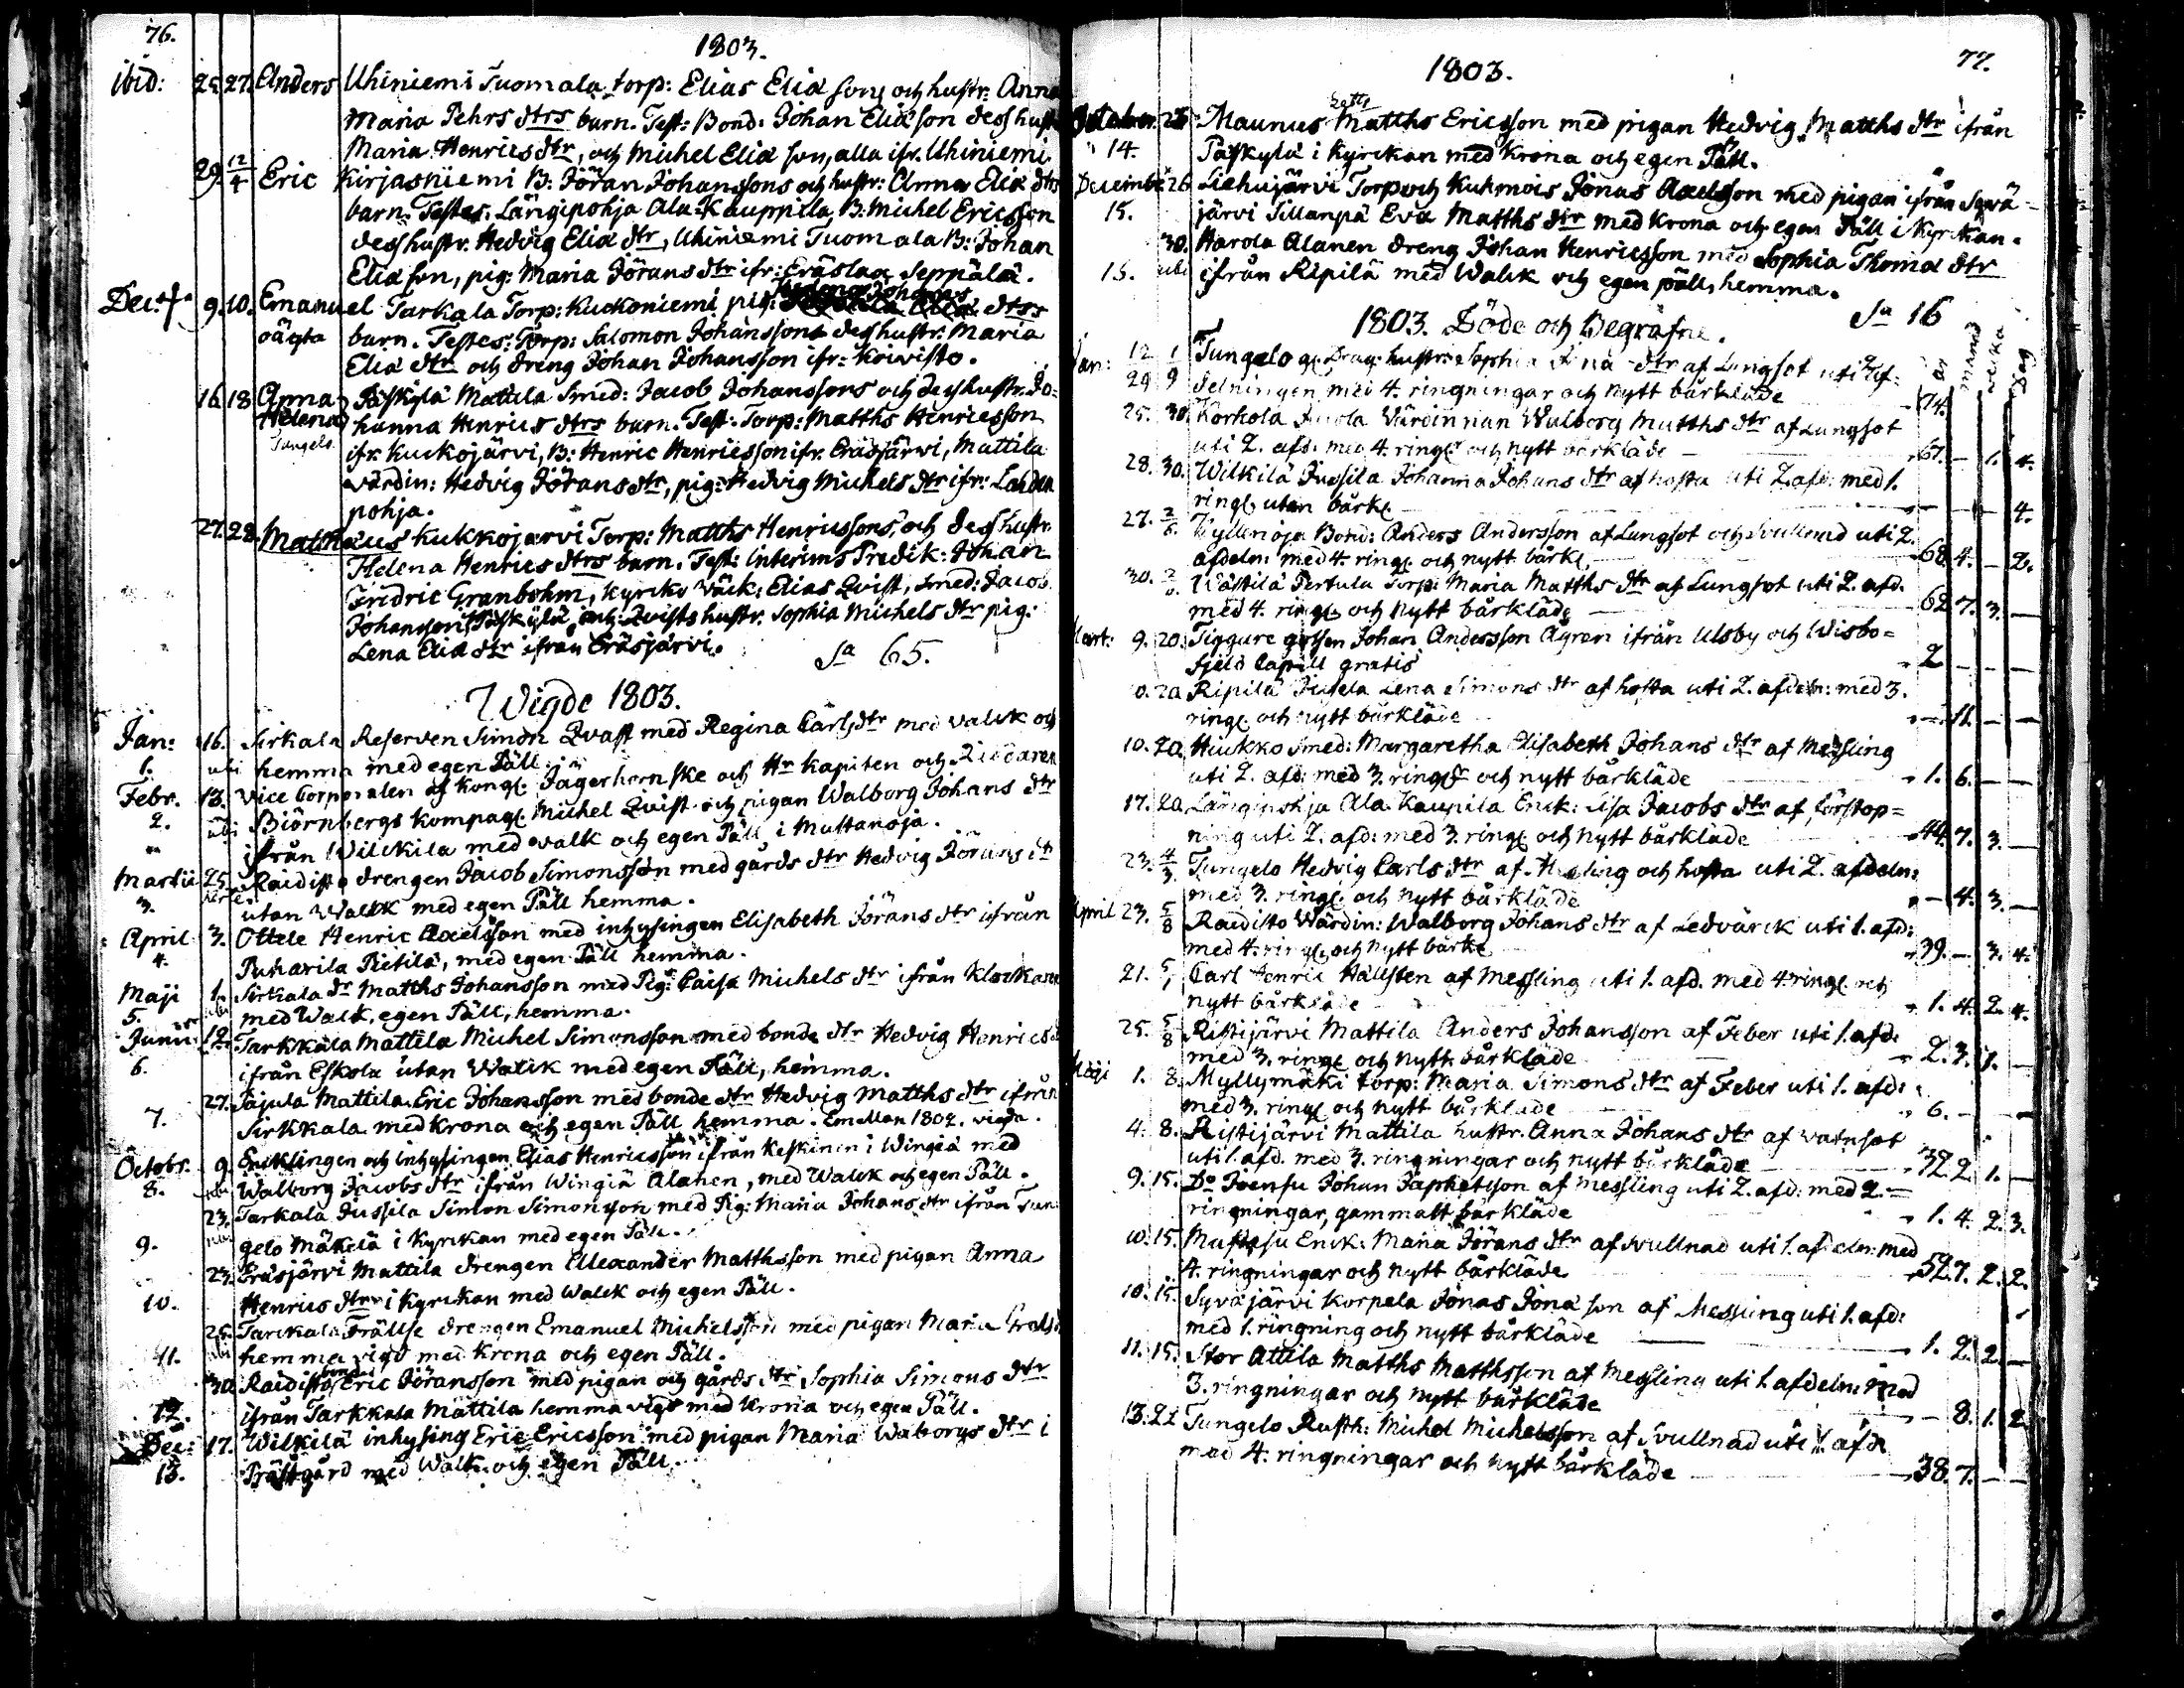 76.
1803.
ibid: 25. 27. Anders Uhiniemi Tuomala torp: Elias Eliæ sons och hustr: Anna
Maria Pehrs dtrs barn. Test: Bond: Johan Eliæ son dess hustr
Maria Henrics dtr, och Michel Eliæ son, alla ifr. Uhiniemi.
29. 12/4 Eric Kirjasniemi B: Jöran Johanssons och hustr: Anna Eliæ dtrs
barn. Testes. Längipohja Ala-Kauppila, B: Michel Ericsson
dess hustr. Hedvig Eliæ dtr, Uhiniemi Tuomala B: Johan
Eliæ son, pig: Maria Jörans dtr ifr: Eräslax Seppälä.
Dec: 9. 10. Emanuel Tarkala Torp: Kuckoniemi pig: Johans dtrs
oägta barn. Testes: Torp: Salomon Johanssons dess hustr. Maria
Eliæ dtr och dreng Johan Johansson ifr: Koivisto.
16. 18 Anna Päskylä Mattila Smed: Jacob Johanssons och dess hustr. Jo=
Helena hanna Henrics dtrs barn. Test: Torp: Matths Henricsson
ifr. Kuckojärvi, B: Henric Henricsson ifr. Eräsjärvi, Mattila
värdin: Hedvig Jörans dtr, pig: Hedvig Michels dtr ifr: Lahden
pohja.
27. 28. Matthäus Kukkojärvi Torp: Matths Henricssons, och dess hustr.
Helena Henrics dtrs barn. Test: Interims Predik: Johan
Fridric Granbohm, Kyrko väck: Elias Qvist, Smed: Jacob
Johansson Päskylä, Qvists hustr. Sophia Michels dtr pig:
Lena Eliæ dtr ifrån Eräsjärvi.
Sa 65.
Wigde 1803.
Jan: 16. Sirkala Reserven Simon Qvast med Regina Carls dtr med walck och
1. hemma med egen Päll.
Febr. 13. Vice Corporalen af Kongl: Jägerhornske och Hr Kapiten och Riddaren
2. Biörnbergs Kompagl: Michel Qvist och pigan Walborg Johans dtr
ifrån Wilckila med walk och egen Päll i Muttanoja.
Martii 25. Raidisto drengen Jacob Simonsson med gårds dtr Hedvig Jörans dtr
3. utan Walck med egen Päll hemma.
April 3. Ottele Henric Axelsson med inhysingen Elisabeth Jörans dtr ifrån
4. Puharila Pietilä, med egen Päll hemma.
Maji 1. Sirkala dr Matths Johansson med Pig: Caisa Michels dtr ifrån Klockaren
5. med Walk, egen Päll, hemma.
Junii 12. Tarkkala Mattila Michel Simonsson med bonde dtr Hedvig Henrics
6. ifrån Eskola utan Walck med egen Päll, hemma.
27. Pajula Mattila Eric Johansson med bonde dtr Hedvig Matths dtr ifrån
7. Sirkkala med krona och egen Päll hemma. Emellan 1802. vigda.
Octobr. 9. Encklingen och inhysingen Elias Henricsson ifrån Keskinen i Wingiä med
8. Walborg Jacobs dtr ifrån Wingiä Alanen, med Walck och egen Päll.
23. Tarkala Jussila Simon Simonsson med Pig: Maria Johans dtr ifrån Tun
9. gelo Mäkelä i Kyrckan med egen Päll.
23. Eräsjärvi Mattila drengen Ellexander Matthsson med pigan Anna
10. Henrics dtr i Kyrckan med Walck och egen Päll.
26. Tarckala Frällse drengen Emanuel Michelsson med pigan Maria
11. hemma vigd med krona och egen Päll.
30. Raidisto Eric Jöransson med pigan och gårds dtr Sophia Simons dtr
12. ifrån Tarkkala Mattila hemma vigd med krona och egen Päll.
Dec: 17. Wilkilä inhysing Eric Ericsson med pigan Maria Waborgs dtr i
13. Prästgård med Walk och egen Päll.
77.
1803.
October. Maunus Matths Ericsson med pigan Hedvig Matths dtr ifrån
14. Päskylä i Kyrckan med krona och egen Päll.
December 26 Liehujärvi Torp och Kuhmois Jonas Axelsson med pigan ifrån Syvä
15. järvi Sillanpä Eva Matths dtr med krona och egen Päll i Kyrckan.
30. Harola Alanen dreng Johan Henricsson med Sophia Thomæ dtr
15. ifrån Ripilä med Walck och egen päll, hemma.
Sa 16
1803. Döde och Begrafne.
år månd veckor Dag
Jan: 12 1 Tungelo gl. Drag: hustr: Sophia dtr af Lungsot uti 2 af:
29 9 delningen med 4. ringningar och nytt bårkläde 74.
25. 30. Korhola Juola Värdinnan Walborg Matths dtr af Lungsot
uti 2. afd. med 4. ringl: och nytt bårkläde 67. — 1. 4.
28. 30. Wilkilä Jussila Johanna Johans dtr af hosta uti 2. afd: med 1.
ringl. utan bårkl. — 4.
27. 2/6. Kyllmoja Bond: Anders Andersson af Lungsot och Svullnad uti 2.
afdeln: med 4. ringl. och nytt bårkl. 68. 4. — 2.
30. Wästilä Pertula Torp: Maria Matths dtr af Lungsot uti 2. afd.
med 4. ringl. och nytt bårkläde 62. 7. 3. —
Mart: 9. 20. Tiggare gossen Johan Andersson Ågren ifrån Ulsby och Wisbo=
fjeld Capell gratis 2 — — —
0. 20 Ripilä Jusela Lena Simons dtr af hosta uti 2. afdeln: med 3.
ringl. och nytt bårkläde 11. — —
10. 20 Huikko Smed: Margaretha Elisabeth Johans dtr af Messling
uti 2. afd: med 3. ringl. och nytt bårkläde 1. 6. — —
17. 20 Längipohja Ala-Kaupila Enck: Lisa Jacobs dtr af förstop=
ning uti 2. afd: med 3. ringl. och nytt bårkläde 44. 7. 3. —
23. 4/3. Tungelo Hedvig Carls dtr af Messling och hosta uti 2. afdeln:
med 3. ringl. och nytt bårkläde — 4. 3. —
April 23. 5/8 Raidisto Wärdin: Walborg Johans dtr af Ledvärck uti 1. afd:
med 4. ringl. och nytt bårkl. 39. — 3. 4.
21. Carl Henric Hällsten af Messling uti 1. afd. med 4. ringl. och
nytt bårkläde 1. 4. 2. 4.
25. 5/8 Ristijärvi Mattila Anders Johansson af Feber uti 1. afd:
med 3. ringl. och nytt bårkläde 2. 3. 1. —
Maji 1. 8. Myllymäki torp: Maria Simons dtr af Feber uti 1. afd:
med 3. ringl. och nytt bårkläde 6. —
4. 8. Ristijärvi Mattila hustr. Anna Johans dtr af vatnsot
uti 1. afd. med 3. ringningar och nytt bårkläde 32. 2. 1. —
9. 15. Do Joensu Johan Japhetsson af Messling uti 2. afd: med 2.
ringningar, gammalt bårkläde 1. 4. 2. 3.
10. 15. Enck: Maria Jörans dtr af svullnad uti 1. afdeln: med
4. ringningar och nytt bårkläde 52. 7. 2. 2.
10. 15. Syväjärvi Korpela Jonas Jonæ son af Messling uti 1. afd:
med 1. ringning och nytt bårkläde 1. 2. 2. —
11. 15. Stor Attila Matths Matthsson af Messling uti 1. afdeln: med
3. ringningar och nytt bårkläde — 8. 1. 2
13. 22 Tungelo Rusth: Michel Michelsson af Svullnad uti 1. afd.
med 4. ringningar och nytt bårkläde 38. 7. — —